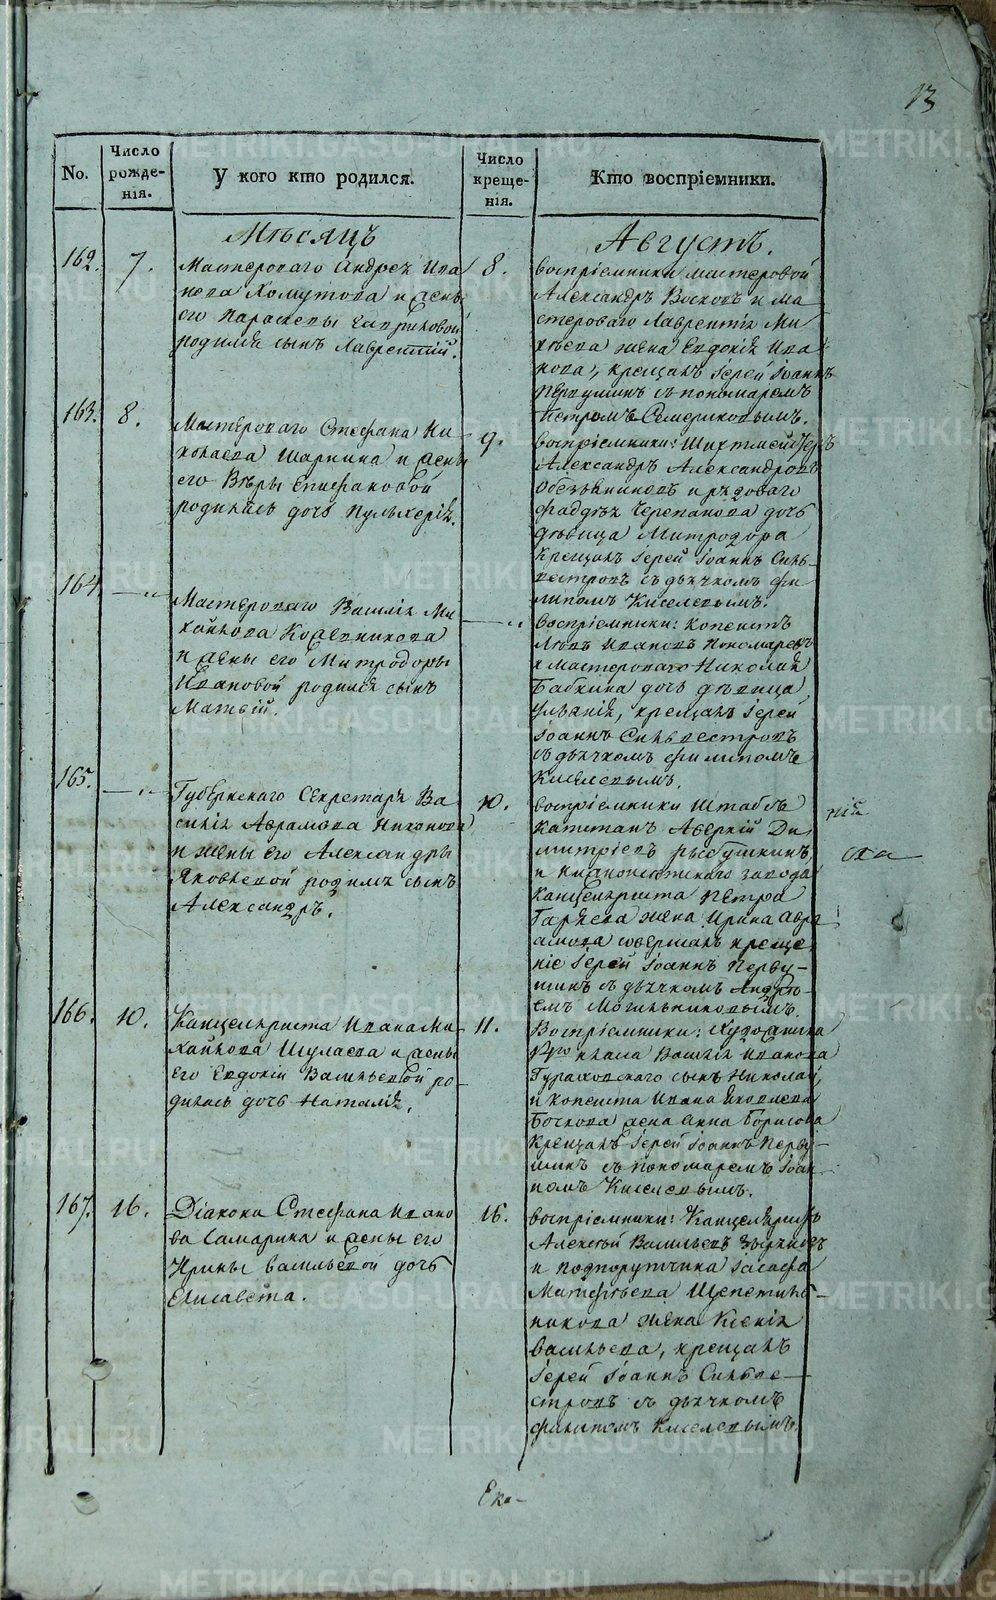 13
No.
Число рожде-нія.
У кого кто родился.
Число креще-нія.
Кто воспріемники.
Мѣсяцъ
Августъ.
162.
7.
Мастероваго Андрея Ива
нова Хомутова и жены
его Параскевы
родился сынъ Лаврентій.
8.
воспріемники мастеровой
Александръ Восковъ и ма
стероваго Лаврентія Ми
хѣева жена Евдокія Ива
нова, крещалъ Іерей Іоаннъ
Первушинъ съ пономаремъ
Петромъ
163.
8.
Мастероваго Стефана Ни
колаева Шарпина и жены
его Вѣры Епифановой
родилась дочь Пульхерія.
9.
воспріемники: Шихтмейстеръ
Александръ Александровъ
Обезьяниновъ и рядоваго
Фаддѣя Черепанова дочь
дѣвица Митродора
крещалъ Іерей Іоаннъ Силь-
вестровъ съ дьячкомъ Фи-
липомъ Киселевымъ.
164.
— "
Мастероваго Василія Ми
хайлова Кожевникова
и жены его Митродоры
Ивановой родился сынъ
Матвій.
— "
воспріемники: копеистъ
Левъ Ивановъ Пономаревъ
и мастероваго Николая
Бабкина дочь дѣвица
Ульянія, крещалъ Іерей
Іоаннъ Сильвестровъ
съ дьячкомъ Филипомъ
Киселевымъ.
165.
— "
Губернскаго Секретаря Ва
силія Абрамова Никонова
и жены его Александры
Яковлевой родился сынъ
Александръ.
10.
воспріемники Штабсъ
Капитанъ Аверкій Ди
митріевъ Рыбушкинъ,
и завода
Канцеляриста Петра
Гаряева жена Ирина Авра
амова совершалъ креще
ніе Іерей Іоаннъ Перву-
шинъ съ дьячкомъ Андрѣ-
емъ Могильниковымъ.
166.
10.
Канцеляриста Ивана Ми-
хайлова Шулаева и жены
его Евдокіи Васильевой ро-
дилась дочь Наталія.
11.
Воспріемники: Художника
класа Василія Иванова
Тураховскаго сынъ Николай,
и копеиста Ивана Яковлева
Бочкова жена Анна Борисова
крещалъ Іерей Іоаннъ Перву-
шинъ съ пономаремъ Іоан
номъ Киселевымъ.
167.
16.
Діакона Стефана Ивано
ва Самарина и жены его
Ирины Васильевой дочь
Елисавета.
16.
воспріемники: Канцеляристъ
Алексѣй Васильевъ Зыряновъ
и подпорутчика Іасафа
Матфѣева Щепетиль-
никова жена Ксенія
Васильева, крещалъ
Іерей Іоаннъ Сильве-
стровъ съ дьячкомъ
Филипомъ Киселевымъ.
Ека-
METRIKI.GASO-URAL.RU